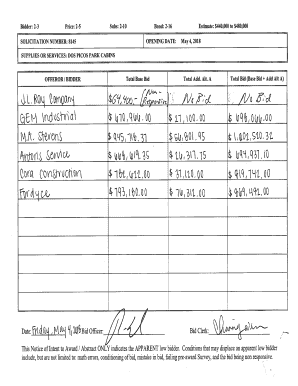 Bidder: 2-3 Price: 2-5 Subs: 2-10 Bond: 2-16 Estimate: $440,000 to $480,000
SOLICITATION NUMBER: 8145 OPENING DATE: May 4, 2018
SUPPLIES OR SERVICES: DOS PICOS PARK CABINS
OFFEROR / BIDDER Total Base Bid Total Add. Alt. A Total Bid (Base Bid + Add Alt A)
J.L. Ray Company $54,400.- Non-Responsive No Bid No Bid
GEM Industrial $ 670,966.00 $ 27,100.00 $ 698,066.00
M.A. Stevens $ 945,718.37 $ 56,801.95 $ 1,002,520.32
Antons Service $ 668,619.35 $ 26,317.75 $ 694,937.10
Cora Construction $ 782,622.00 $ 37,120.00 $ 819,742.00
Fordyce $ 793,180.00 $ 76,312.00 $ 869,492.00
Date: Friday, May 4, 2018 Bid Officer: Bid Clerk:
This Notice of Intent to Award / Abstract ONLY indicates the APPARENT low bidder. Conditions that may displace an apparent low bidder
include, but are not limited to: math errors, conditioning of bid, mistakes in bid, failing pre-award Survey, and the bid being non responsive.